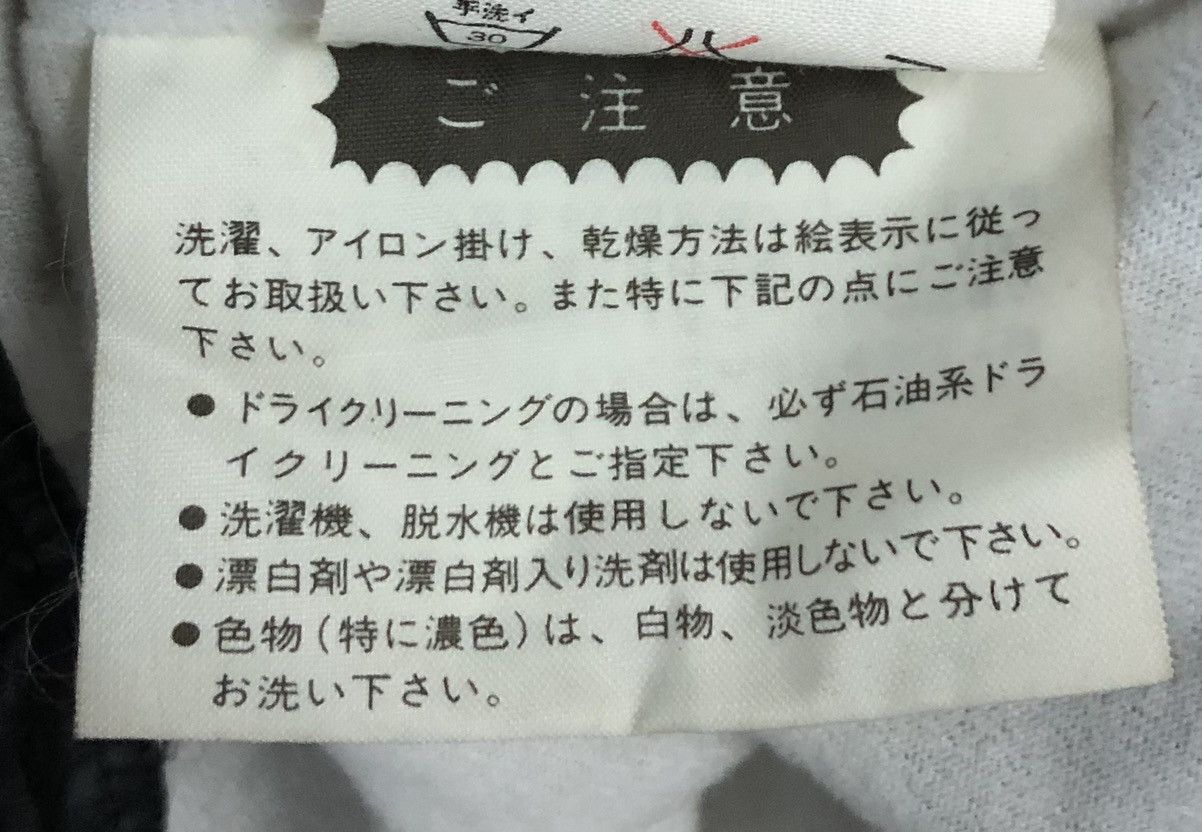 手洗イ
30
ご注意
洗濯、アイロン掛け、乾燥方法は絵表示に従っ
てお取扱い下さい。また特に下記の点にご注意
下さい。
● ドライクリーニングの場合は、必ず石油系ドラ
イクリーニングとご指定下さい。
● 洗濯機、脱水機は使用しないで下さい。
● 漂白剤や漂白剤入り洗剤は使用しないで下さい。
● 色物(特に濃色)は、白物、淡色物と分けて
お洗い下さい。